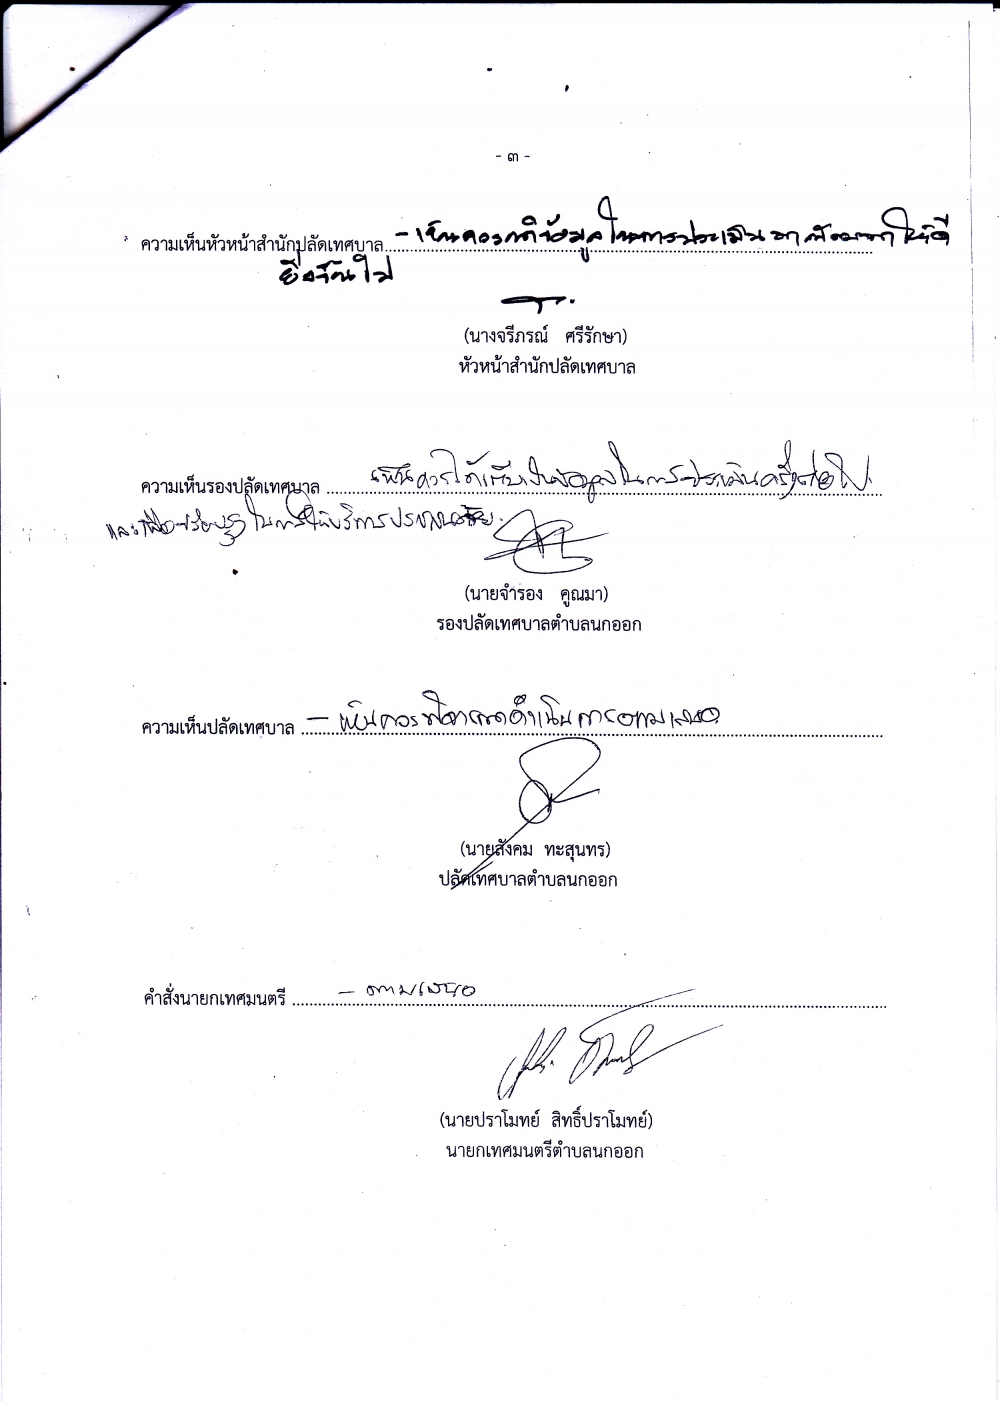 - ๓ -
ความเห็นหัวหน้าสำนักปลัดเทศบาล - เห็นควรนำข้อมูลในการประเมิน มาพัฒนาให้ดี
ยิ่งขึ้นไป
(นางจรีภรณ์ ศรีรักษา)
หัวหน้าสำนักปลัดเทศบาล
ความเห็นรองปลัดเทศบาล เห็นควร ข้อมูลในการประเมินครั้งต่อไป
และเพื่อปรับปรุงในการให้บริการประชาชนด้วย
(นายจำรอง คูณมา)
รองปลัดเทศบาลตำบลนกออก
ความเห็นปลัดเทศบาล - เห็นควรพิจารณาดำเนินการตามเสนอ
(นายสังคม ทะสุนทร)
ปลัดเทศบาลตำบลนกออก
คำสั่งนายกเทศมนตรี - ตามเสนอ
(นายปราโมทย์ สิทธิ์ปราโมทย์)
นายกเทศมนตรีตำบลนกออก